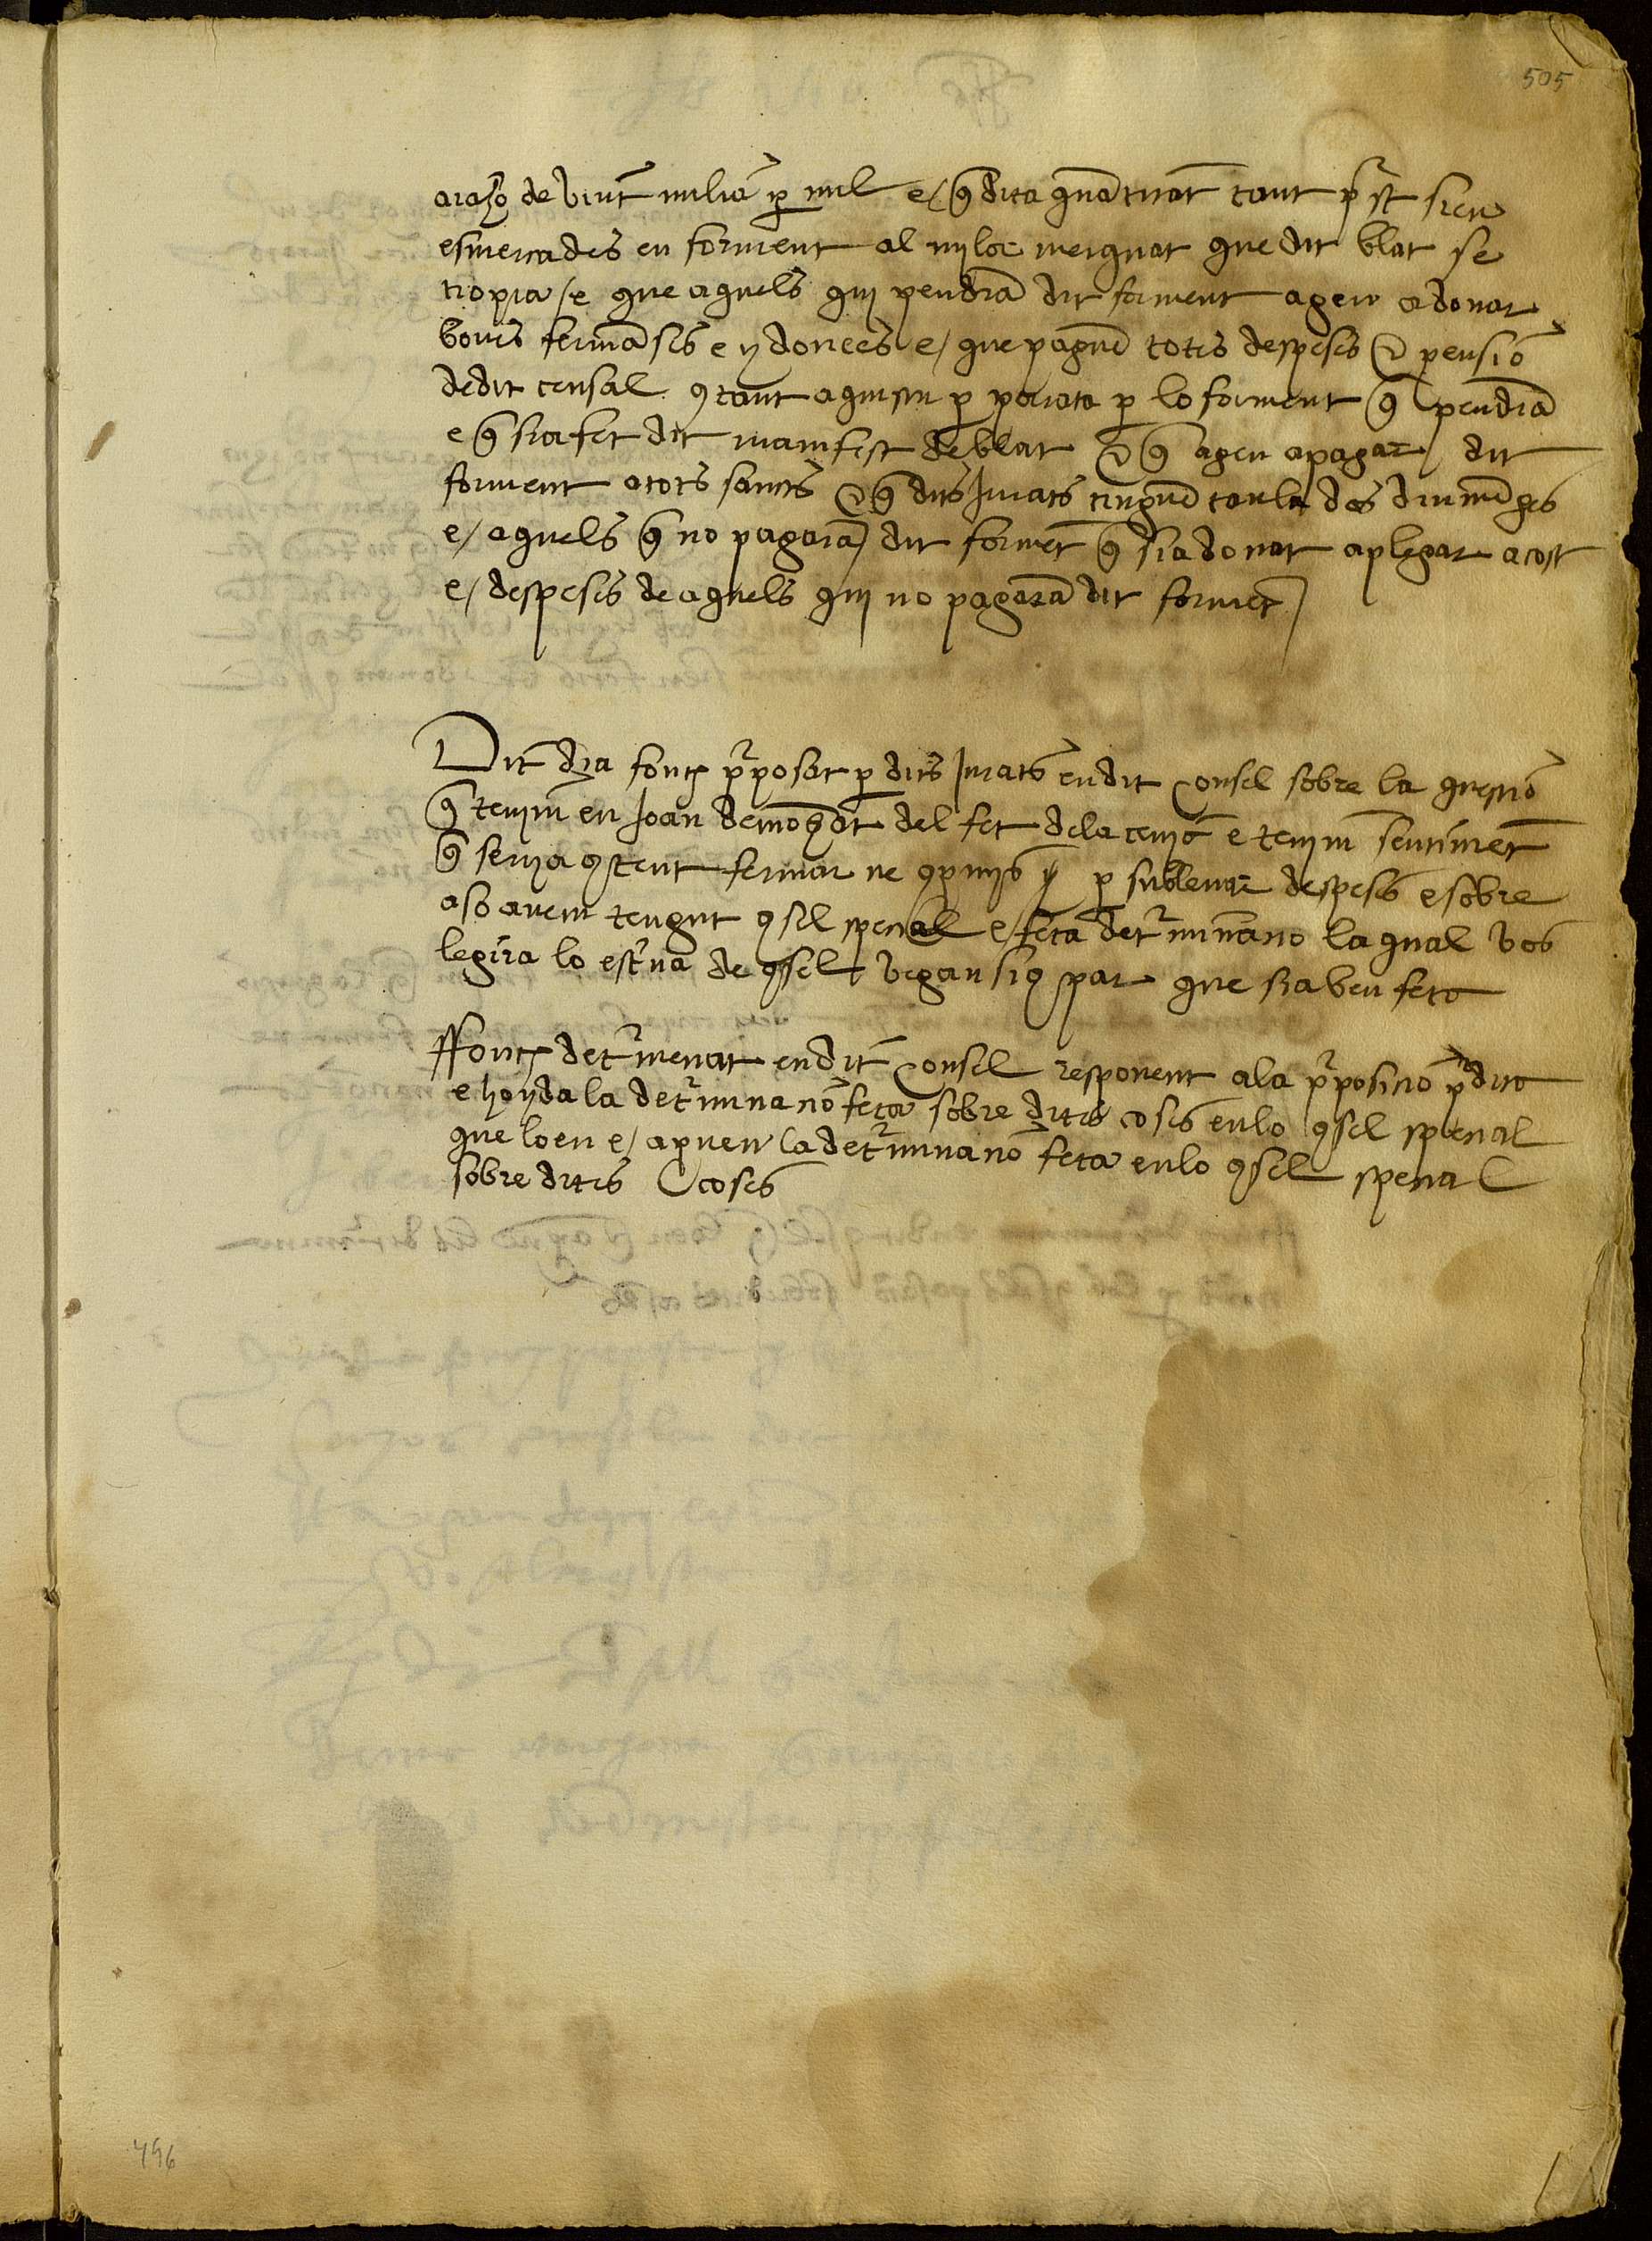 505
arazo de vint milia per mil e/ q̃ dita quãtitat tant p̃st sien
esmercades en forment al mylor merquat que dit blat se
tropia /e que aquels qui pendrã dit forment agen a donar
bones fermãses e ydonees e/ que paguẽ totes despeses & pensio
de dit censal 9tant aquesta per parata per lo forment q̃ pendrã
e q̃ sia fet dit manifest de blat & q̃ agen apagar dit
forment atots sancts & q̃ dits Jurats tinguẽ taula dos diumẽges
e/ aquels q̃ no pagarã dit formẽt q̃ sia donat aplegar acost
e/ despeses de aquels qui no pagarã dit formẽt
Dit dia fonch p̃posat per dits Jurats endit Consel sobre la questio
q̃ tenim en Joan de del fet dela e tenim sentimẽt
q̃ seria 9tent fermar ne 9promis per sublevar despeses e sobre
aso avem tengut 9sel special e/ feta detr̃minãtio la qual vos
legira lo esc̃va de 9sel vegan si9 par que sia ben feta
Ffonch detr̃menat en dit Consel responent ala p̃posicio p̃dita
e hoyda la detr̃minatiõ feta sobre dites coses enlo 9sel special
que loen e/ apruen la detr̃minatiõ feta enlo 9sel special
sobre dites coses
496